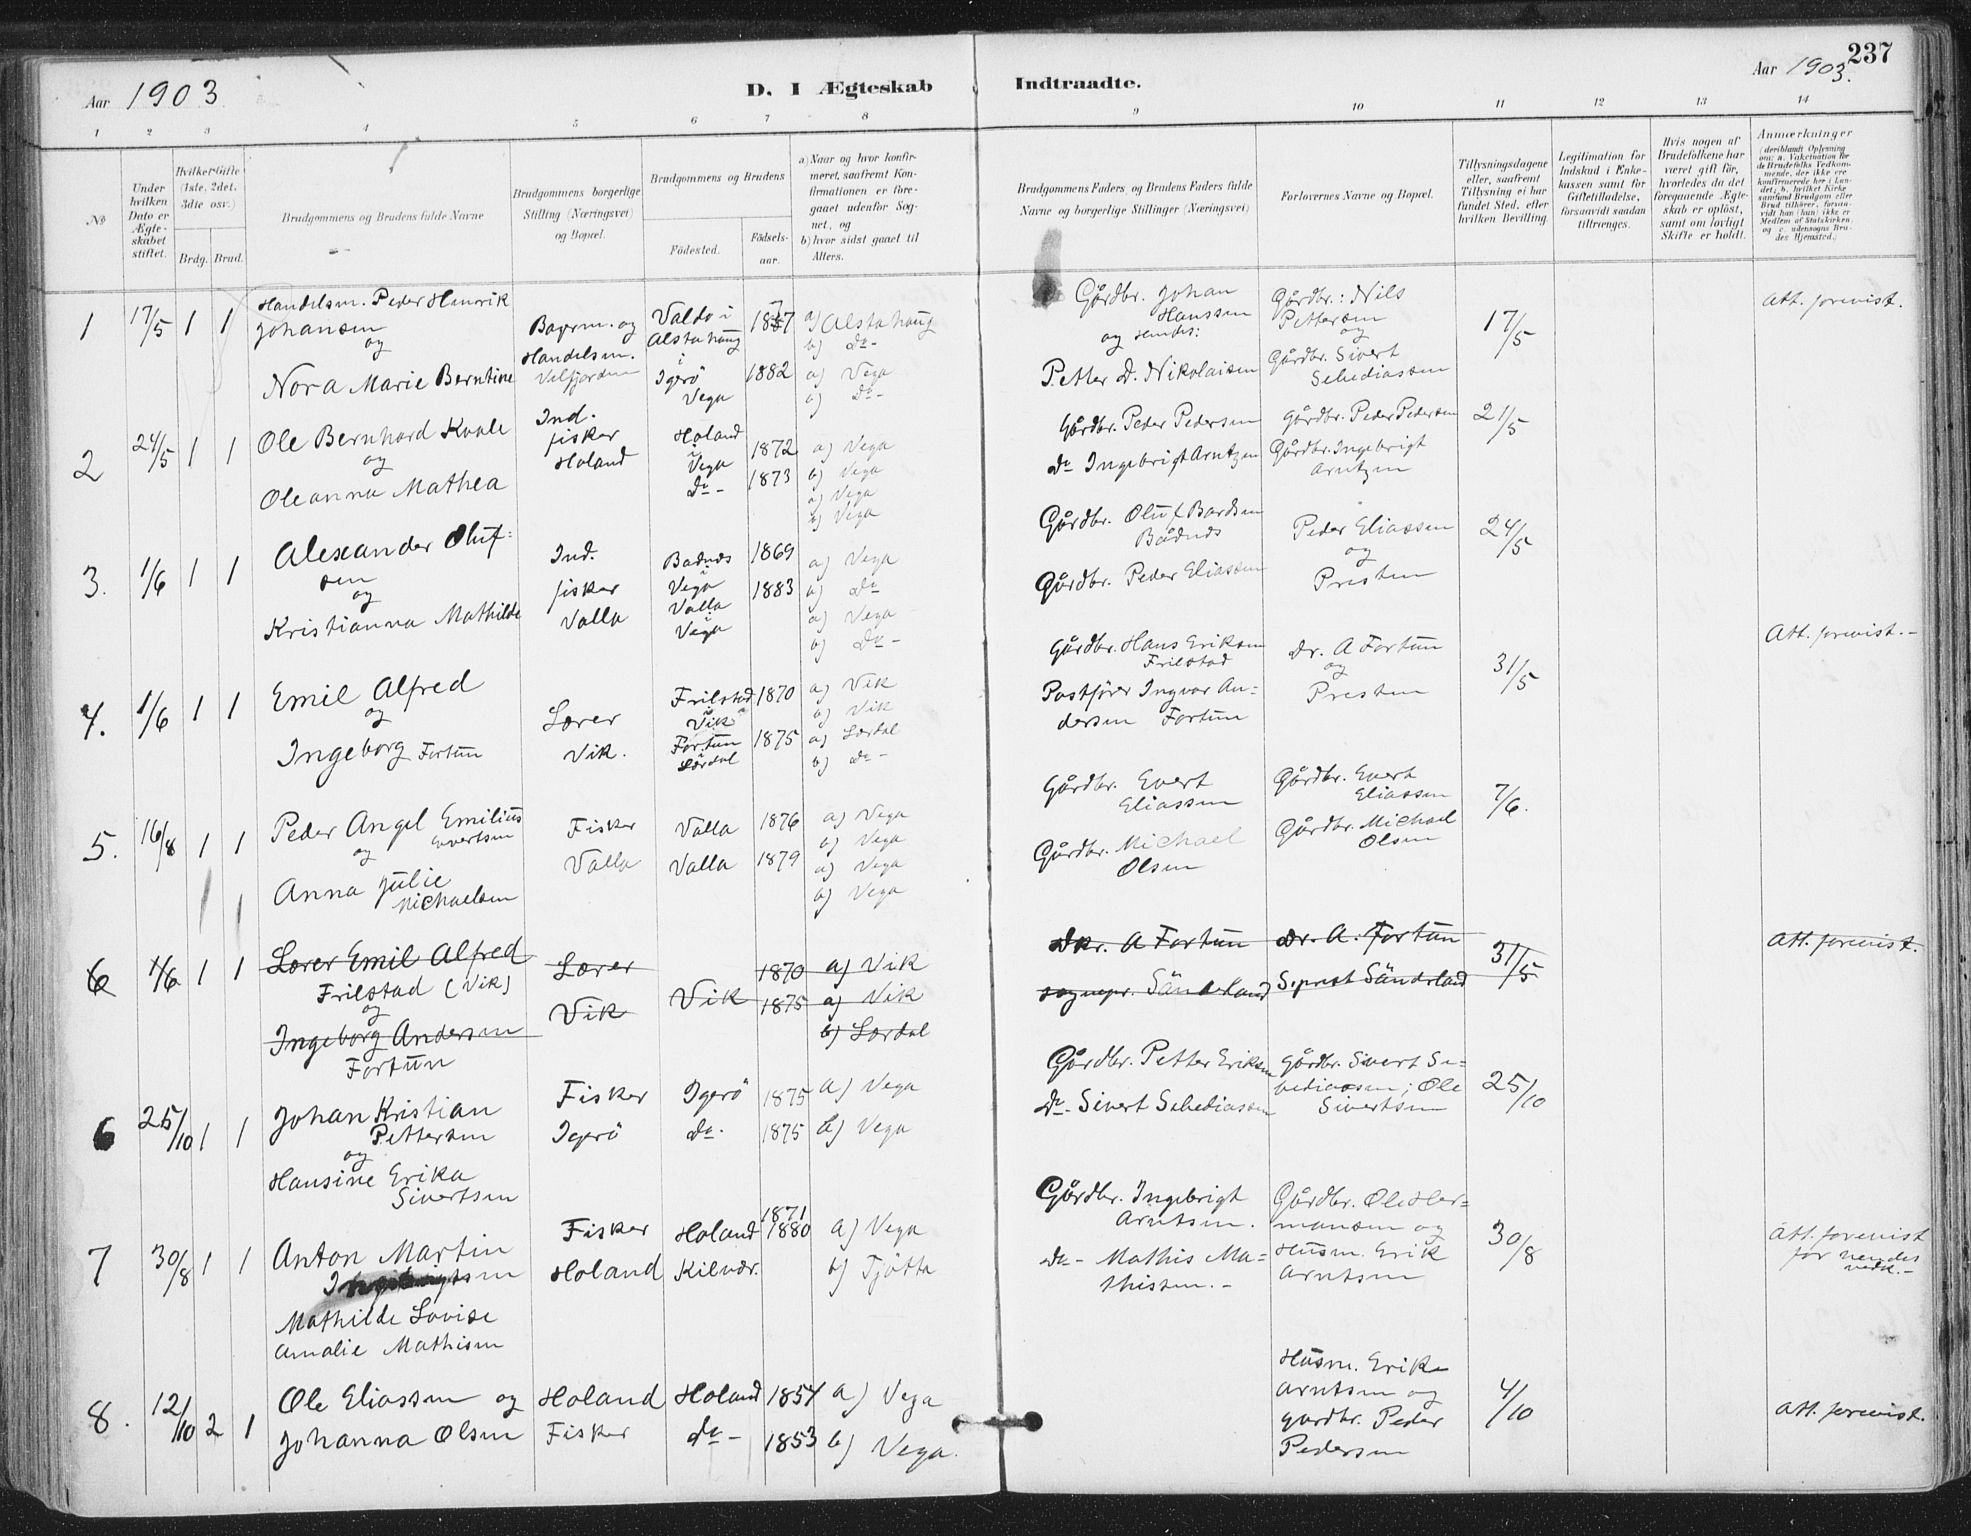 237
Aar 1903
D. I Ægteskab Indtraadte.
Aar 1903.
1 2 3 4 5 6 7 8 9 10 11 12 13 14
No
Under hvilken Dato er Ægteskabet stiftet.
Hvilket Gifte (1ste, 2det, 3die osv.)
Brdg. Brud.
Brudgommens og Brudens fulde Navne
Brudgommens borgerlige Stilling (Næringsvei) og Bopæl.
Brudgommens og Brudens
Fødested.
Fødselsaar.
a) Naar og hvor konfirmeret, saafremt Konfirmationen er foregaaet udenfor Sognet, og
b) hvor sidst gaaet til Alters.
Brudgommens Faders og Brudens Faders fulde Navne og borgerlige Stillinger (Næringsvei)
Forlovernes Navne og Bopæl.
Tillysningsdagene eller, saafremt Tillysning ei har fundet Sted, efter hvilken Bevilling.
Legitimation for Indskud i Enkekassen samt for Giftetilladelse, forsaavidt saadan tiltrænges.
Hvis nogen af Brudefolkene har været gift før, hvorledes da det foregaaende Ægteskab er opløst, samt om lovligt Skifte er holdt.
Anmærkninger (deriblandt Oplysning om: a. Vakcination for de Brudefolks Vedkommende, der ikke ere konfirmerede her i Landet; b. hvilket Kirkesamfund Brudgom eller Brud tilhører, forsaavidt han (hun) ikke er Medlem af Statskirken, og c. udensogns Brudes Hjemsted.)
1 17/5 1 1
Handelsm. Peder Henrik
Johansen
og
Nora Marie Berntine
Bogrm. og
Handelsm.
Velfjorden
Valdo i
Alstahaug
i
Igerö
Vega
1882
a) Alstahaug
b) Do-
a) Vega
b) Do-
Gårdbr. Johan
Hanssen
og Hendes:
Petter D. Nikolaisen
Gårdbr.: Nils
Pettersen
og
Gårdbr. Sivert
Sebediassen
17/5
Att. forevist.
2 24/5 1 1
Ole Bernhard Kvale
og
Oleanna Mathea
Ind.
fisker
Holand
Holand
i
Vega
Do-
1872
1873
a) Vega
b) Vega
a) Vega
b) Vega
Gårdbr. Peder Pedersen
Do Ingebrigt Arntzen
Gårdbr. Peder Pedersen
Gårdbr. Ingebrigt
Arntzen
21/5
3. 1/6 1 1
Alexander Oluf=
sen
og
Kristianna Mathilde
Ind.
fisker
Valla
Badnes
i
Vega
Valla
i
Vega
1869
1883
a) Vega
b) Do
a) Vega
b) Do-
Gårdbr. Oluf Bardsen
Bådnds
Gårdbr. Peder Eliassen
Peder Eliassen
og
Presten
24/5
4. 1/6 1 1
Emil Alfred
og
Ingeborg Fortun
Lærer
Vik.
Frilstad
i
Vik
Fortun
i
Lærdal
1870
1875
a) Vik
b) Vik
a) Lærdal
b) Do-
Gårdbr. Hans Eriksen
Frilstad
Postfører Ingvar An=
dersen Fortun
Dr. A Fortun
og
Presten
31/5
Att. forevist.-
5. 16/8 1 1
Peder Angel Emilius
Evertsen
og
Anna Julie
Michaelsen
Fisker
Valla
Valla
Valla
1876
1879
a) Vega
b) Vega
a) Vega
b) Vega
Gårdbr. Evert
Eliassen
Gårdbr. Michael
Olsen
Gårdbr. Evert
Eliassen
Gårdbr. Michael
Olsen
7/6.
6 1/6 1 1
Lærer Emil Alfred
Frilstad (Vik)
og
Ingeborg Andersen
Fortun
Lærer
Vik
Vik
1870
1875
a) Vik
a) Vik
b) Lærdal
Dkr. A Fortun
sognepr. Sändeland
Dr. A. Fortun
S.prest Sändeland
31/5
Att. forevist.
6 25/10 1 1
Johan Kristian
Pettersen
og
Hansine Erika
Sivertsen
Fisker
Igerö
Igerö
do.
1875
1875
a) Vega
b) Vega
Gårdbr. Petter Eriksen
Do- Sivert Sebediassen
Gårdbr. Sivert Se=
bediassen; Ole
Sivertsen
25/10
7 30/8 1 1
Anton Martin
Ingebrigtsen
Mathilde Lovise
Amalie Mathisen
Fisker
Holand
Holand
Kilvær.
1871
1880
a) Vega
b) Tjötta
Gårdbr. Ingebrigt
Arntsen.
Do- Mathis Ma=
thissen.-
Gårdbr. Ole Her=
mansen og
Husm. Erik
Arntsen
30/8
Att. forevist
for hendes
vedk.-
8. 12/10 2 1
Ole Eliassen og
Johanna Olsen
Holand
Fisker
Holand
do-
1854
1853
a) Vega
b) Vega.
Husm. Erik
Arntsen og
gardbr. Peder
Pedersen
4/10
Att. forevist.